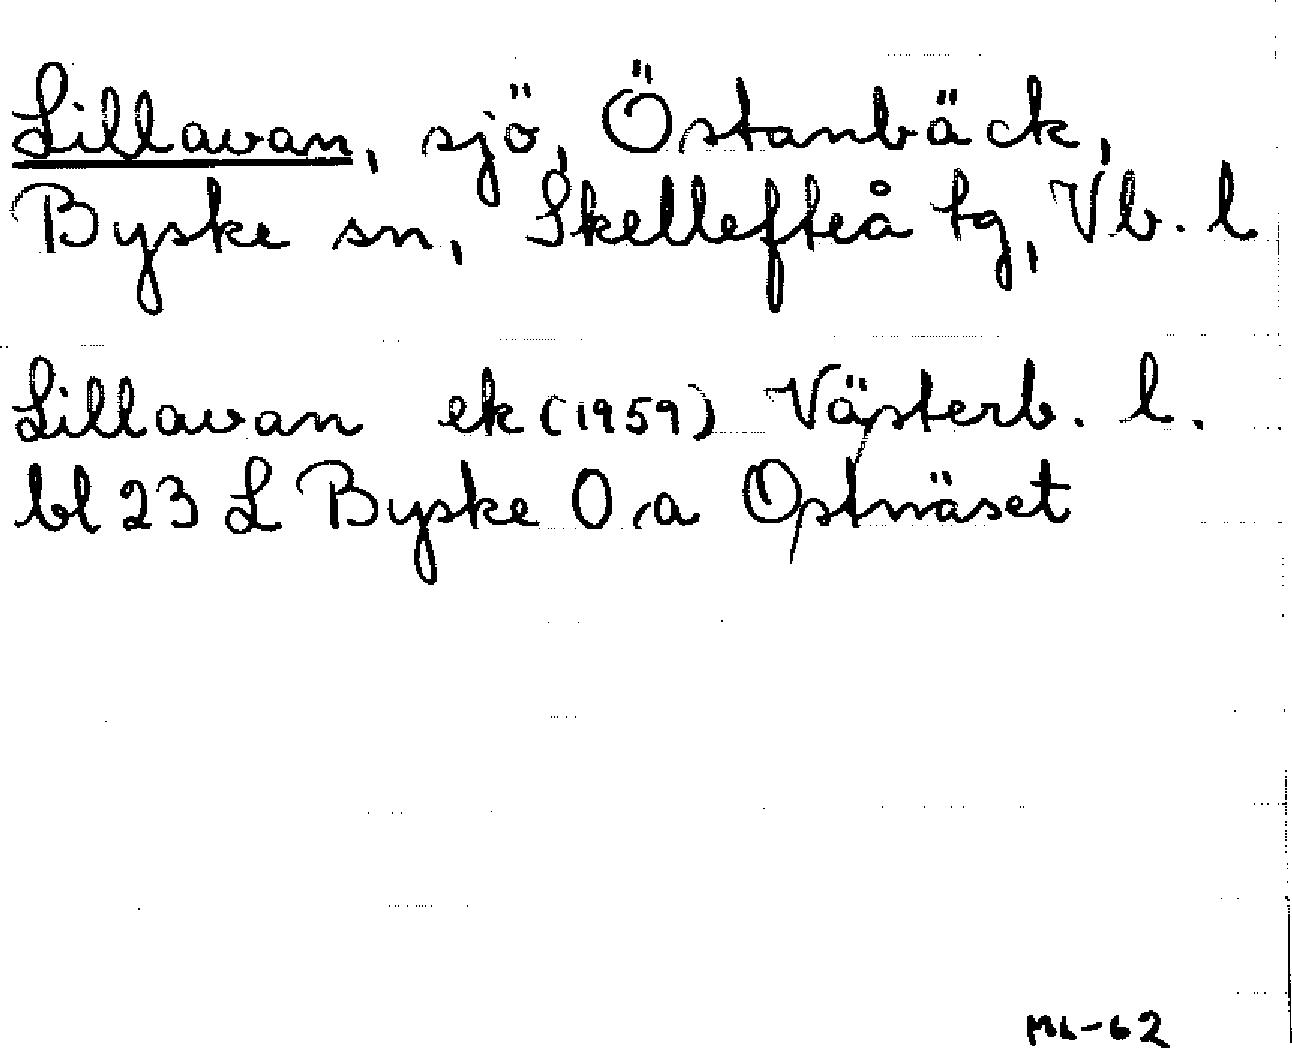 Lillavan, sjö, Östanbäck,
Byske sn, Skellefteå tg, Vb. l
Lillavan ek (1959) Västerb. l.
bl 23 L Byske O.a Ostnäset
ML-62